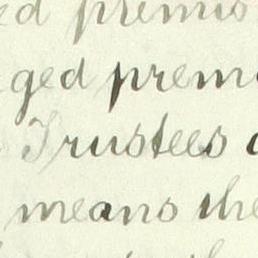 ed premis
ged prem
Trustees
means the